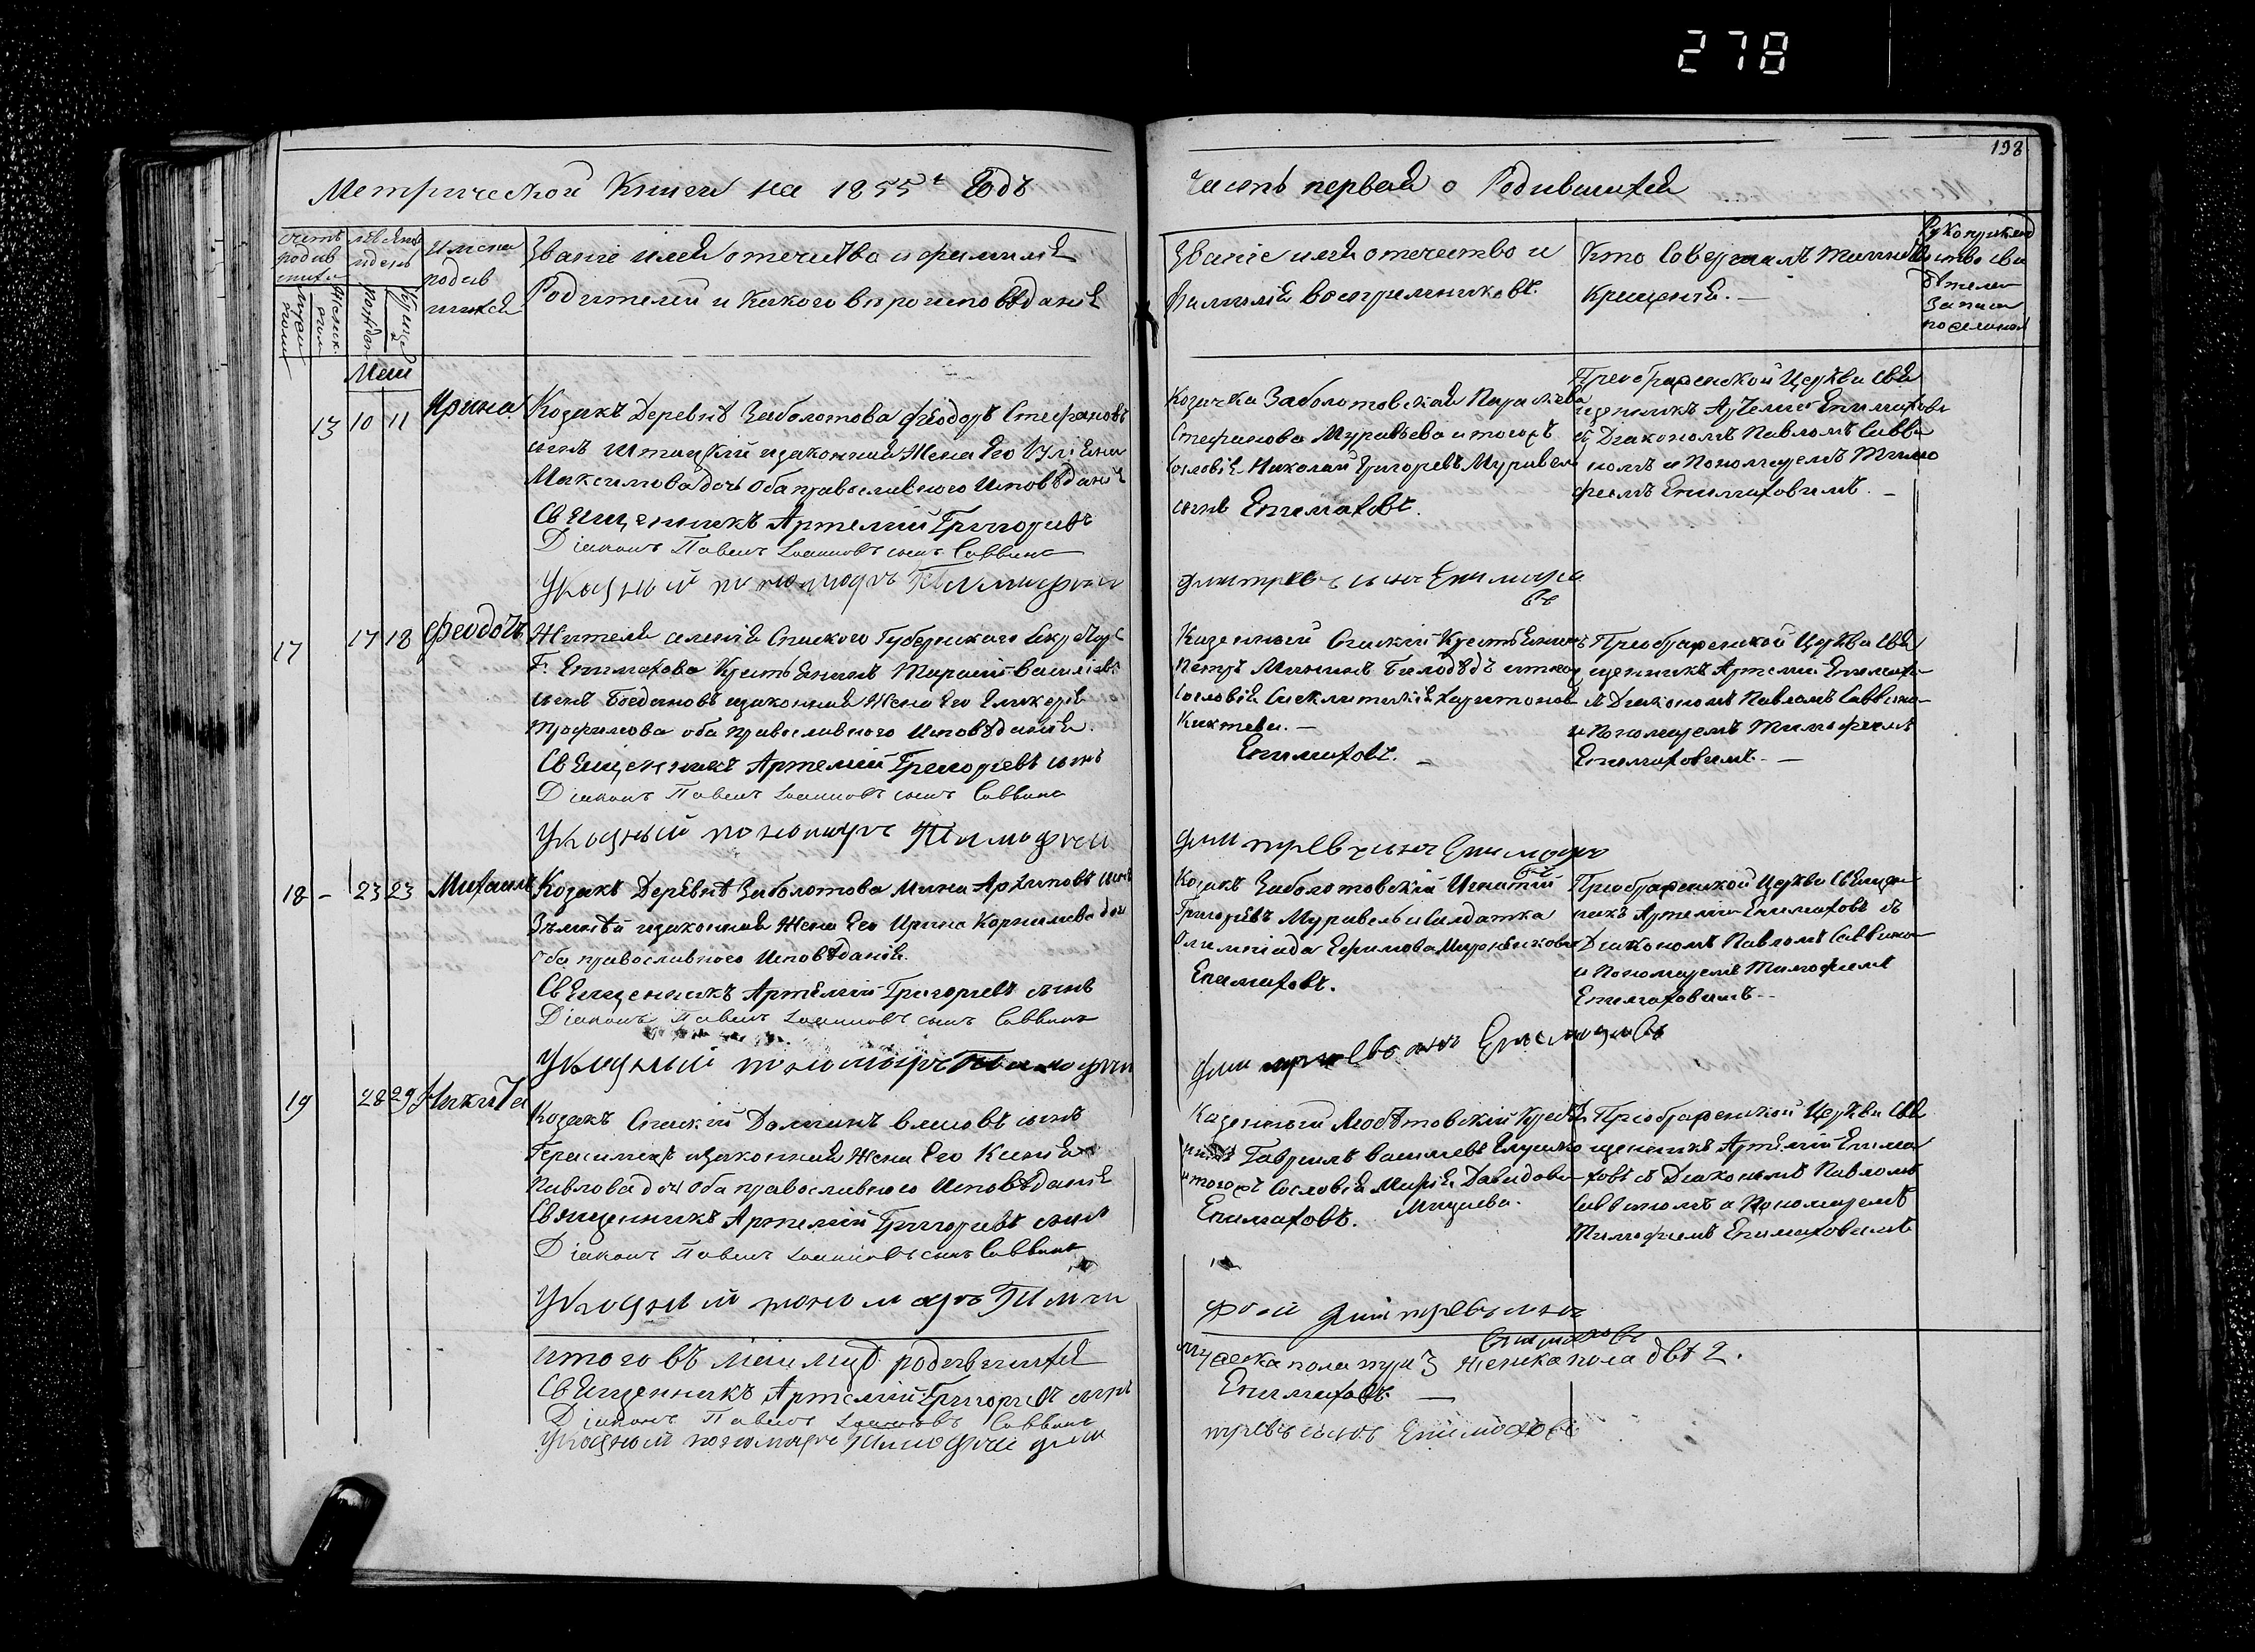 278
198
Метрической Книги на 1855й Годъ
Часть первая о Родившихся
счетъ родив шихся
мужеск. полу
женск. полу
мѣсяцъ и день
рожден.
крещен.
Имена родив шихся
Званіе имя отечество и фамилія
Родителей и какого вѣроисповѣданія
Званіе имя отечество и
Фамилія воспріемниковъ.
Кто совершалъ таинство
крещенія. —
Рукоприклад
ство сви
дѣтелей
Записи
по желанію
Маія
13 10 11 Ирина
Козакъ Деревнѣ Заболотова Феодоръ Стефановъ
сынъ и законная Жена Его Уліяна
Максимова дочь оба православного Исповѣданія
Священникъ Артемій Григоріевъ
Діаконъ Павелъ Іоанновъ сынъ Саввинъ
Указный пономаръ Тимофей
Козачка Заболотовская Параскева
Стефанова Муравьева и тогожъ
сословія Николай Григоревъ Муравель
сынъ Епимаховъ.
Дмитревъ сынъ Епимахо
въ
Преображенской Церкви Свя
щенникъ Артемій Епимаховъ
съ Діакономъ Павломъ Савви
номъ и Пономаремъ Тимо
феемъ Епимаховымъ. —
17 17 18 Феодотъ
Житель селенія Спаского Губернского Секретаря
Г. Епимахова Крестьянинъ Тарасій Василіевъ
сынъ Богдановъ и законная Жена Его Гликерія
Трофимова оба православного Исповѣданія.
Священникъ Артемій Григоріевъ сынъ
Діаконъ Павелъ Іоанновъ сынъ Саввинъ
Указный пономаръ Тимофей
Казенный Спаскій Крестьянинъ
Петръ Мининъ Билодѣдъ и тогожъ
сословія Харитонова
Епимаховъ. —
Дмитревъ сынъ Епимахо
въ
Преображенской Церкви Свя
щенникъ Артемій Епимахо
съ Діакономъ Павломъ Саввино
и Пономаремъ Тимофеемъ
Епимаховымъ. —
18 — 23 23 Михаилъ
Козакъ Деревнѣ Заболотова Мина Архиповъ сынъ
и законная Жена Его Ирина Корнилева доч
оба православного Исповѣданія.
Священникъ Артемій Григоріевъ сынъ
Діаконъ Павелъ Іоанновъ сынъ Саввинъ
Указный пономаръ Тимофей
Козакъ Заболотовскій Игнатій
Григоревъ Муравель и Солдатка
Олимпіада Ефимова
Епимаховъ.
Дмитревъ сынъ Епимаховъ
Преображенской Церкви Священ
никъ Артемій Епимаховъ съ
Діакономъ Павломъ Саввино
и Пономаремъ Тимофеемъ
Епимаховымъ. —
19 28 29 Никита
Козакъ Спаскій сынъ
и законная Жена Его Ксенія
Павлова доч оба православного Исповѣданія
Священникъ Артемій Григоріевъ сынъ
Діаконъ Павелъ Іоанновъ сынъ Саввинъ
Указный пономаръ Тимо
Казенный Крестья
нинъ Гаврилъ Василевъ
и тогожъ Сословія Марія Давидова
Епимаховъ.
фей Дмитревъ сынъ
Епимаховъ
Преображенской Церкви Свя
щенникъ Артемій Епима
ховъ съ Діакономъ Павломъ
Саввиномъ и Пономаремъ
Тимофеемъ Епимаховымъ
итого въ маіи мцѣ родившихся
мужеска пола три 3 женска пола двѣ 2.
Священникъ Артемій Григоріевъ сынъ
Епимаховъ. —
Діаконъ Павелъ Іоанновъ Саввинъ
Указный пономаръ Тимофей Дми
тревъ сынъ Епимаховъ